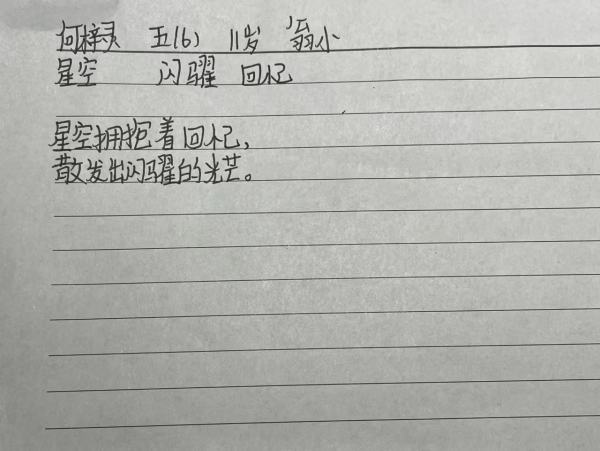 何梓灵 五(6) 11岁 翁小
星空 闪耀 回忆
星空拥抱着回忆,
散发出闪耀的光芒。